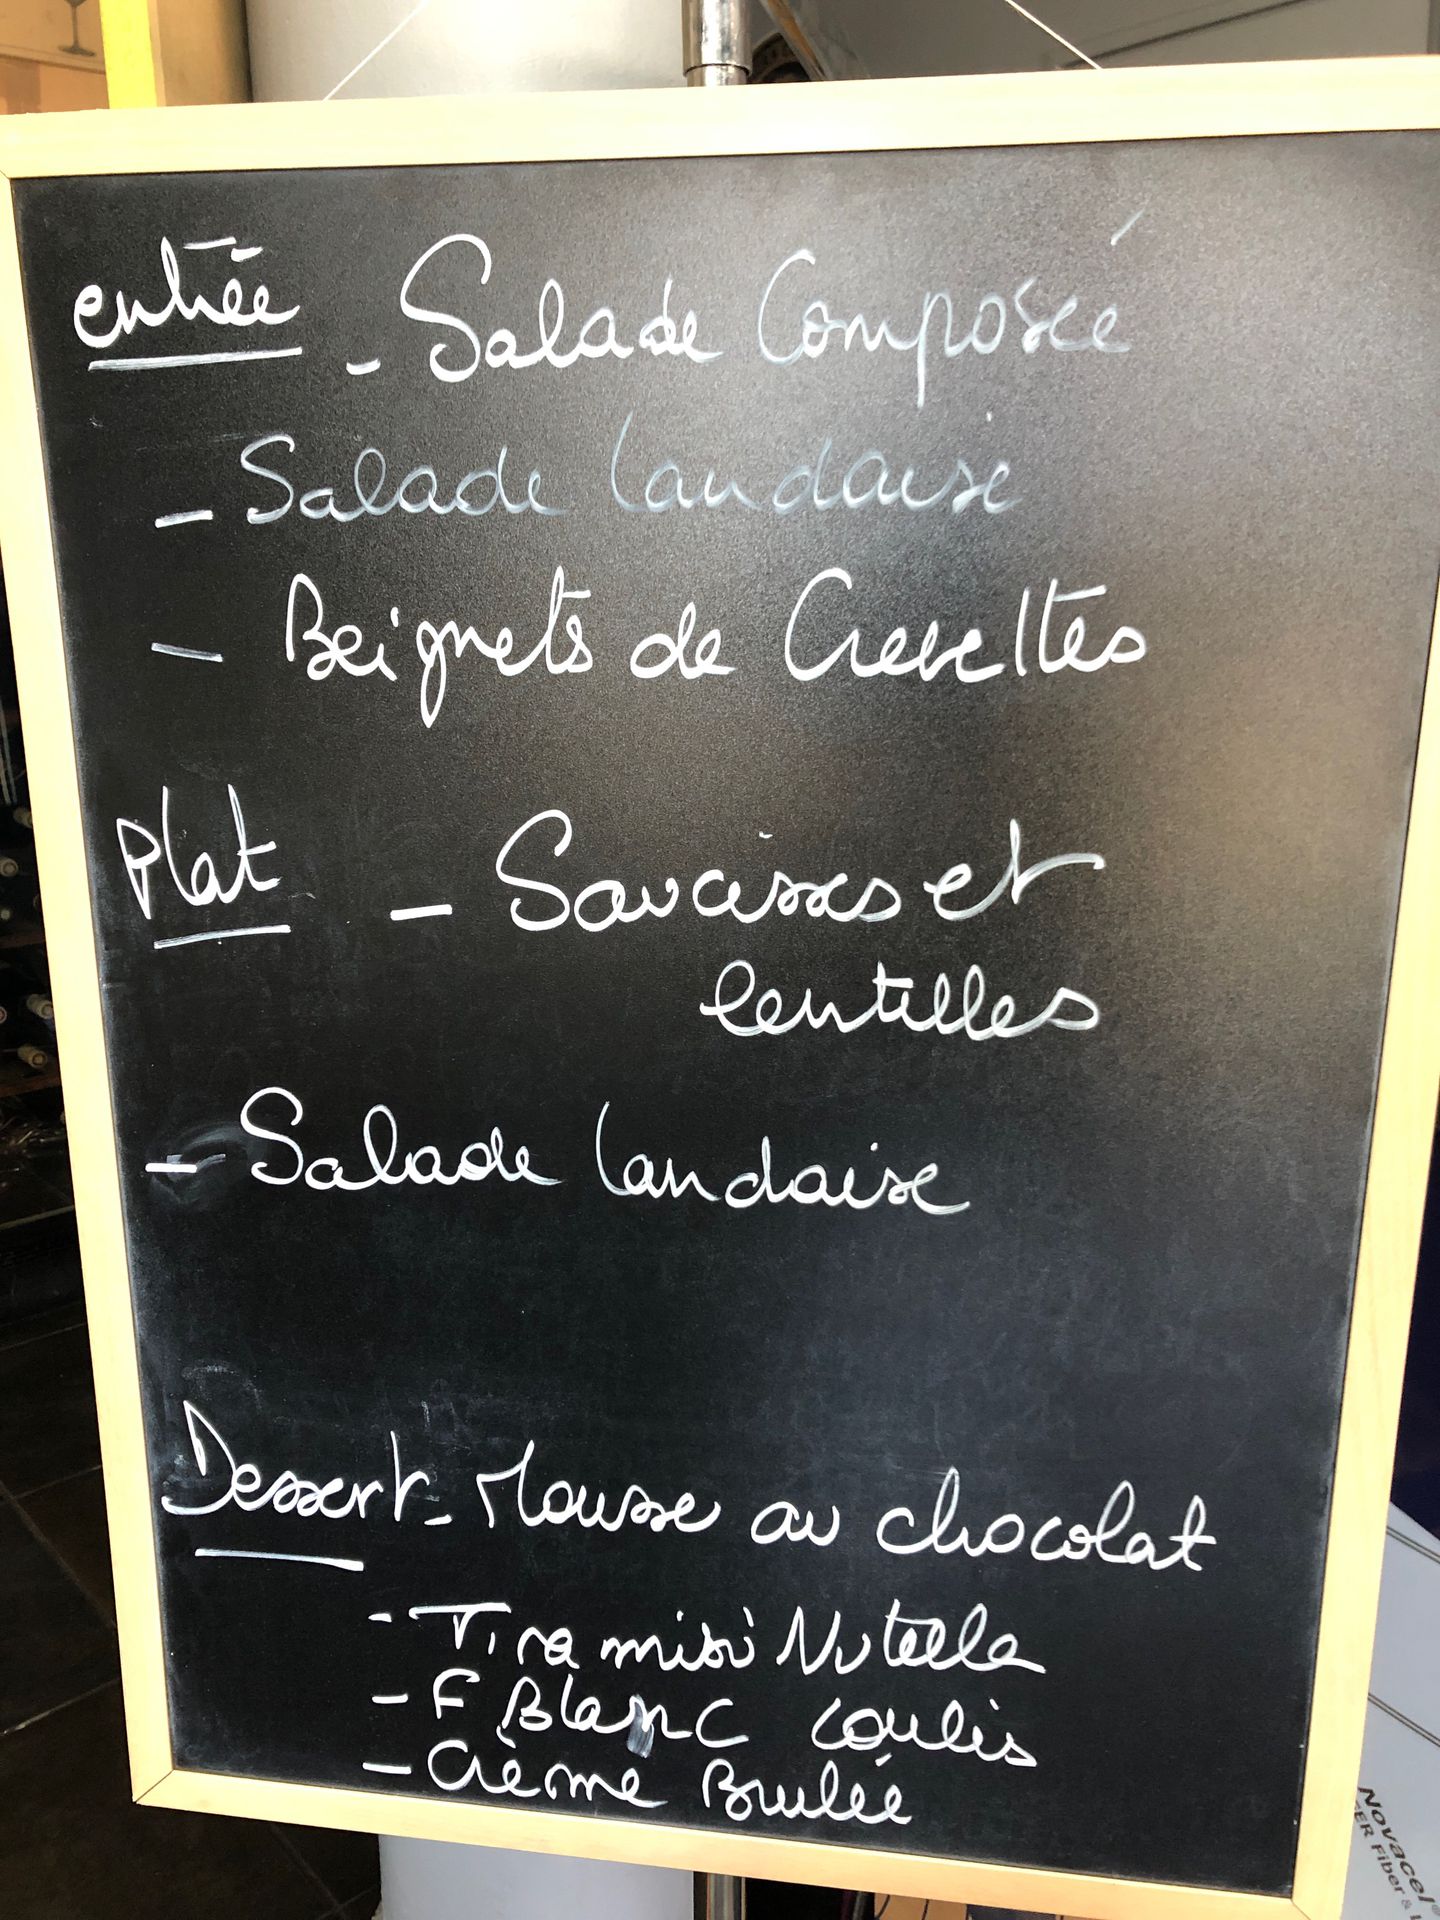 entrée - Salade Composée
- Salade landaise
- Beignets de Crevettes
Plat - Saucisses et
lentilles
- Salade landaise
Dessert - Mousse au chocolat
- Tiramisu Nutella
- F Blanc coulis
- Crème Brulée
Novacel
Fiber &